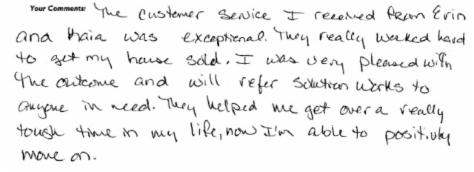 Your Comments: The customer service I received from Erin
and Kaia was exceptional. They really worked hard
to get my house sold. I was very pleased with
the outcome and will refer Solution Works to
anyone in need. They helped me get over a really
tough time in my life, now I'm able to positively
move on.